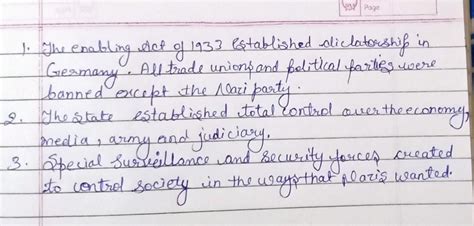 Page
1. The enabling Act of 1933 established diclatorship in
Germany. All trade unions and political parties were
banned except the Nazi party.
2. The state established total control over the economy,
media, army and judiciary.
3. Special surveillance and security forces created
to control society in the ways that Nazis wanted.